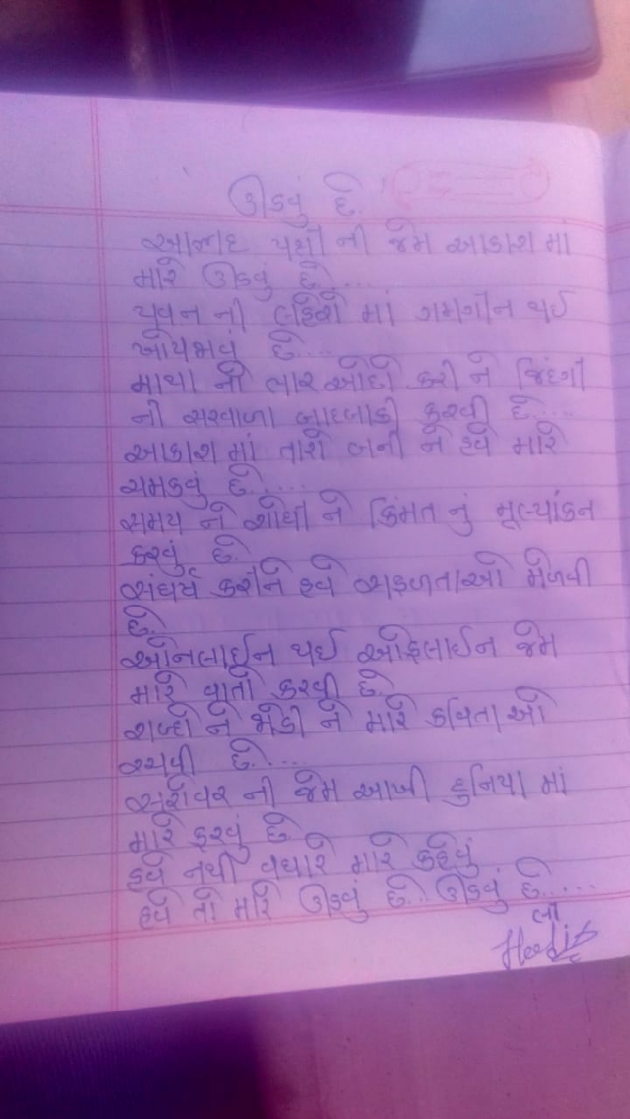 ઊડવું છે.
આઝાદ પક્ષી ની જેમ આકાશ માં
મારે ઊડવું છે....
પવન ની લહેરો માં ગમગીન થઈ
ખોવાઈ જવું છે...
માથા નો ભાર ઓછો કરી ને જિંદગી
ની સરવાળા બાદબાકી કરવી છે....
આકાશ માં તારો બની ને હવે મારે
ચમકવું છે.....
સમય ને શોધી ને કિંમત નું મૂલ્યાંકન
કરવું છે.
સંઘર્ષ કરીને હવે સફળતાઓ મેળવી
છે.
ઓનલાઈન થઈ ઓફલાઈન જેમ
મારે વાતો કરવી છે.
શબ્દો ને જોડી ને મારે કવિતા ઓ
રચવી છે....
સરોવર ની જેમ આખી દુનિયા માં
મારે ફરવું છે
હવે નથી વધારે મારે કહેવું
હવે તો મારે ઊડવું છે.. ઊડવું છે.....
લી